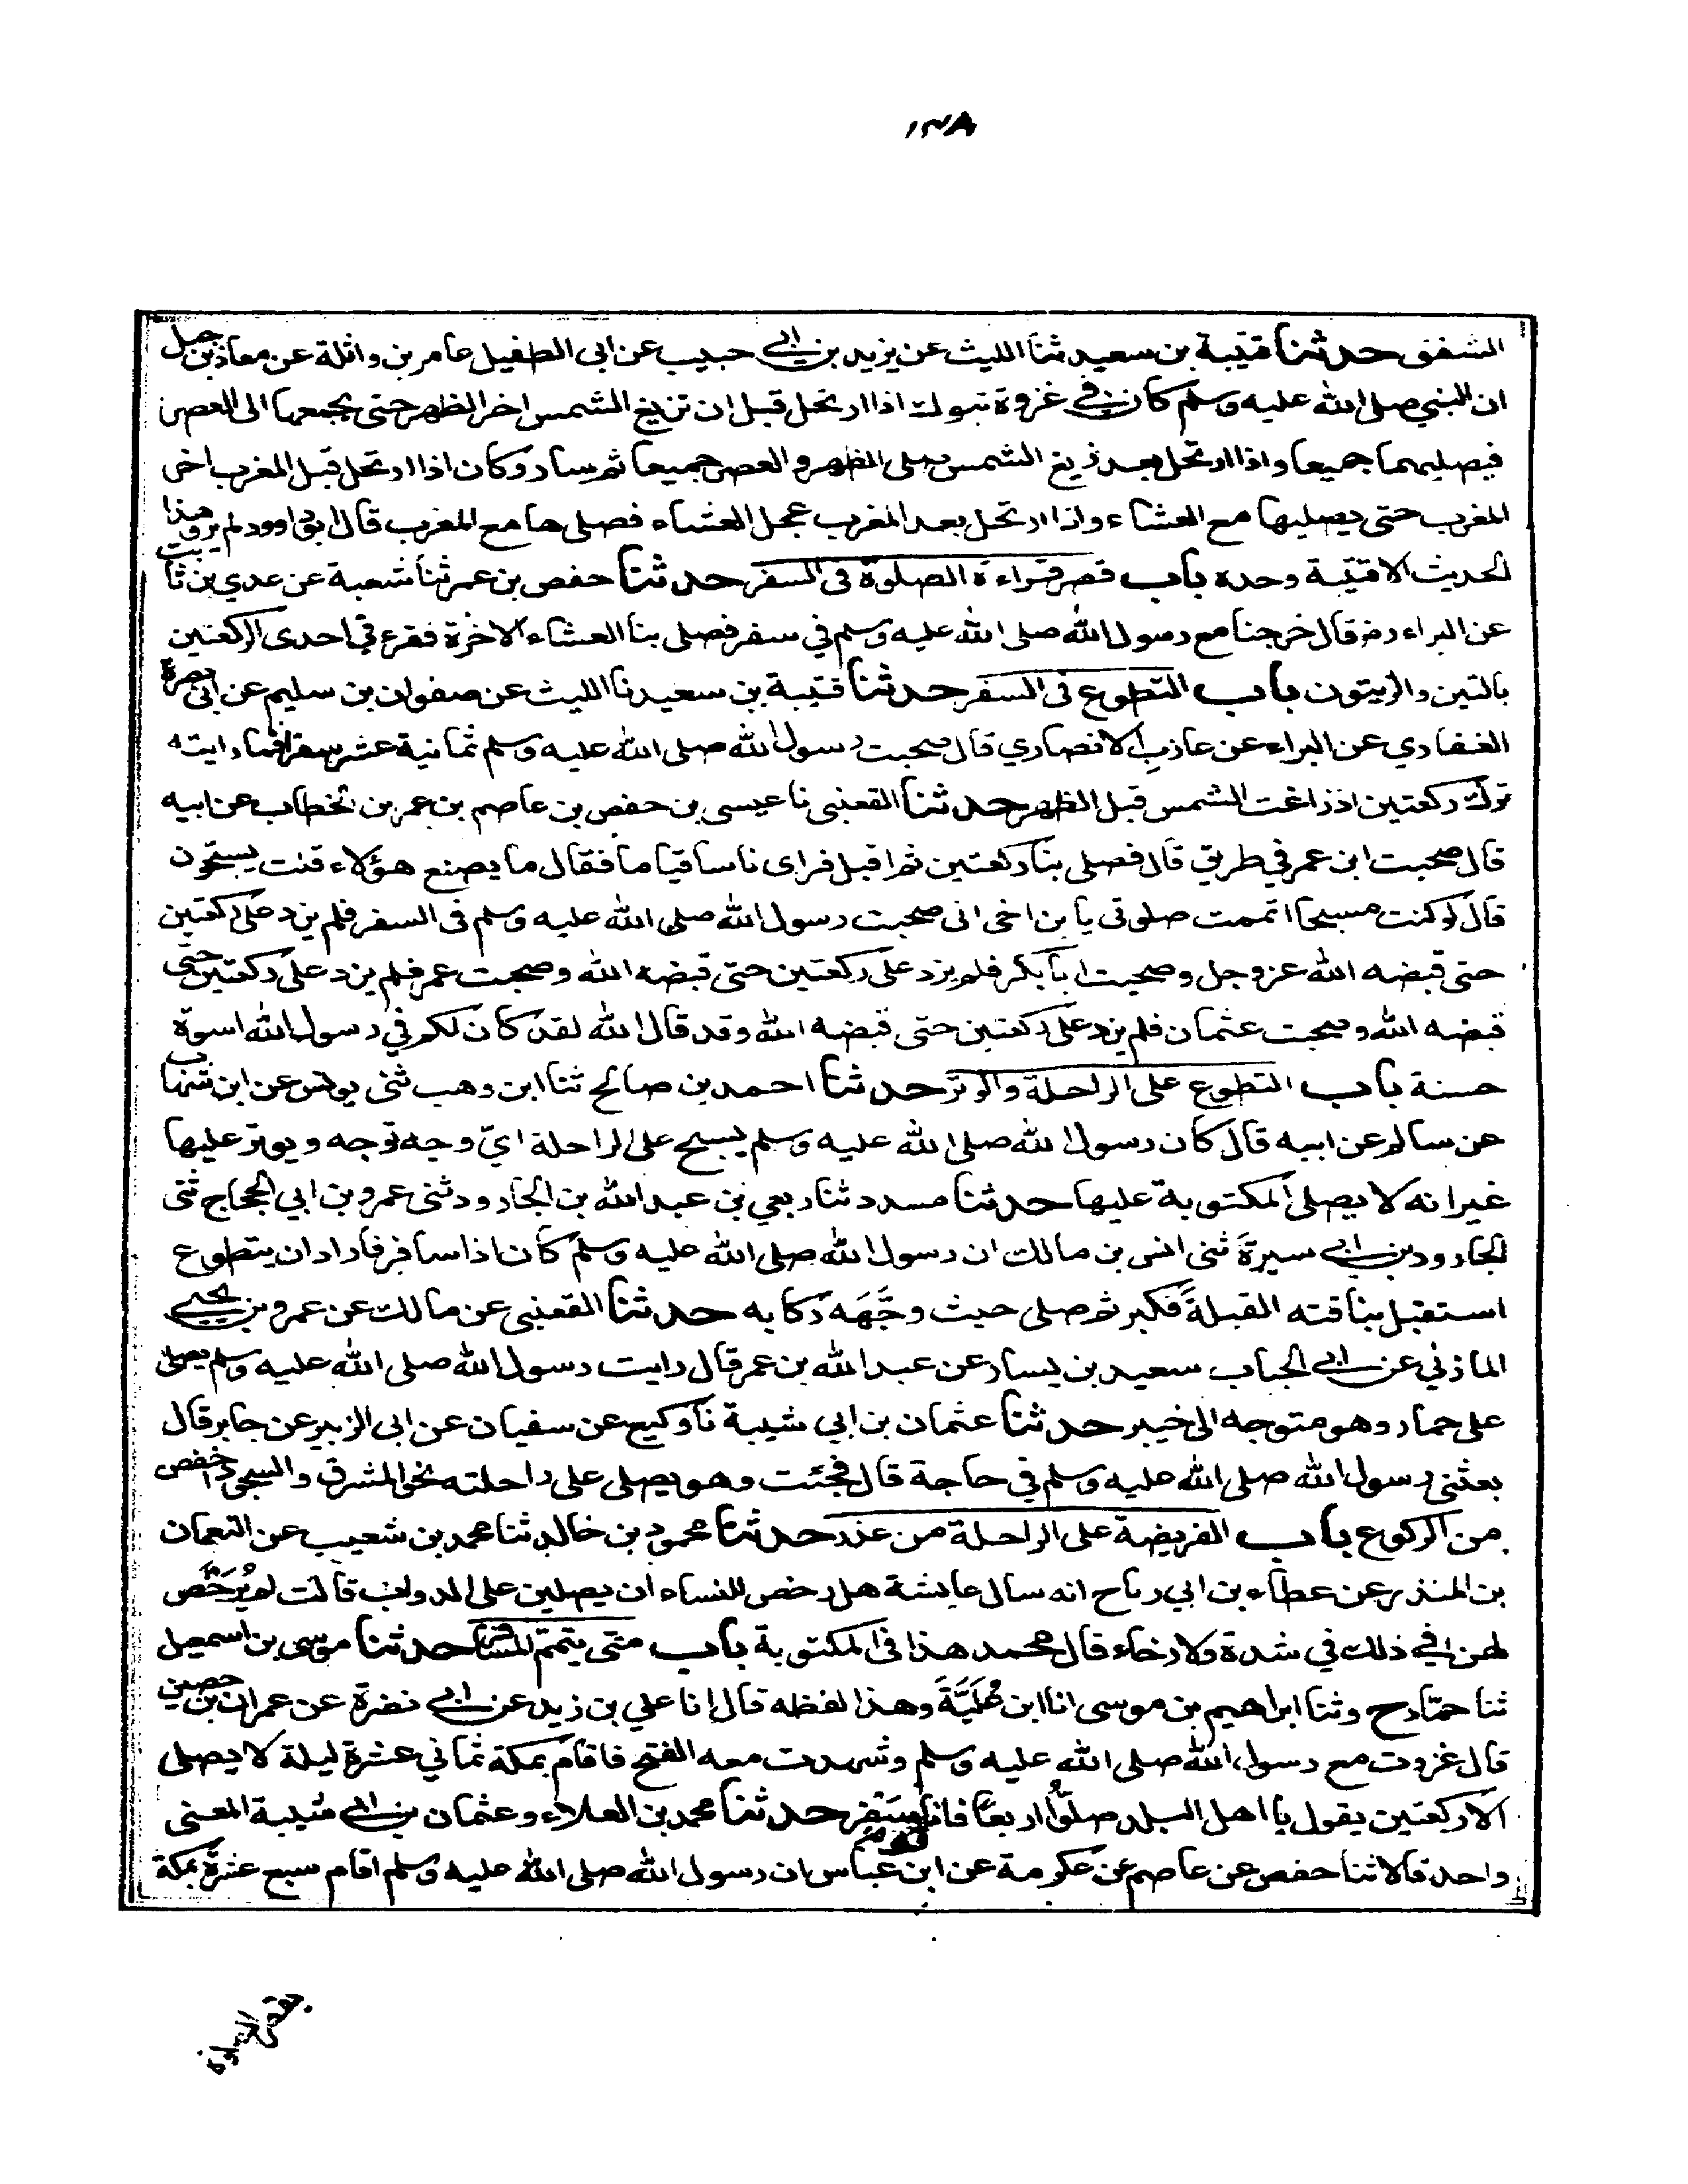 ١٣٨
الشفق حدثنا قتيبة بن سعيد ثنا الليث عن يزيد بن ابي حبيب عن ابى الطفيل عامر بن واثلة عن معاذ بن جبل
ان النبي صلى الله عليه وسلم كان في غزوة تبوك اذا ارتحل قبل ان تزيغ الشمس اخر الظهر حتى يجمعها الى العصر
فيصليهما جميعا واذا ارتحل بعد زيغ الشمس صلى الظهر والعصر جميعا ثم سار وكان اذا ارتحل قبل المغرب اخر
المغرب حتى يصليها مع العشاء واذا ارتحل بعد المغرب عجل العشاء فصلى ها مع المغرب قال ابو داوود لم يرو هذا
الحديث الا قتيبة وحده باب قصر قراءة الصلوة فى السفر حدثنا حفص بن عمر ثنا شعبة عن عدي بن ثابت
عن البراء رضه قال خرجنا مع رسول الله صلى الله عليه وسلم في سفر فصلى بنا العشاء الاخرة فقرء في احدى الركعتين
بالتين والزيتون باب التطوع فى السفر حدثنا قتيبة بن سعيد نا الليث عن صفوان بن سليم عن ابى بصرة
الغفاري عن البراء عن عازب الانصاري قال صحبت رسول الله صلى الله عليه وسلم ثمانية عشر سفرا فما رايته
ترك ركعتين اذ زاغت الشمس قبل الظهر حدثنا القعنبى نا عيسى بن حفص بن عاصم بن عمر بن الخطاب عن ابيه
قال صحبت ابن عمر في طريق قال فصلى بنا ركعتين ثم اقبل فراى ناسا قياما فقال ما يصنع هؤلاء قلت يسبحون
قال لو كنت مسبحا اتممت صلوتى يا بن اخى انى صحبت رسول الله صلى الله عليه وسلم فى السفر فلم يزد على ركعتين
حتى قبضه الله عز وجل وصحبت ابا بكر فلم يزد على ركعتين حتى قبضه الله وصحبت عمر فلم يزد على ركعتين حتى
قبضه الله وصحبت عثمان فلم يزد على ركعتين حتى قبضه الله وقد قال الله لقد كان لكم في رسول الله اسوة
حسنة باب التطوع على الراحلة والوتر حدثنا احمد بن صالح ثنا ابن وهب ثنى يونس عن ابن شهاب
عن سالم عن ابيه قال كان رسول الله صلى الله عليه وسلم يسبح على الراحلة اي وجه توجه ويوتر عليها
غير انه لا يصلى المكتوبة عليها حدثنا مسدد ثنا ربعي بن عبد الله بن الجارود ثنى عمرو بن ابي الحجاج ثنى
الجارود بن ابي سبرة ثنى انس بن مالك ان رسول الله صلى الله عليه وسلم كان اذا سافر فاراد ان يتطوع
استقبل بناقته القبلة فكبر ثم صلى حيث وجّهه ركابه حدثنا القعنبى عن مالك عن عمرو بن يحيى
المازني عن ابي الحباب سعيد بن يسار عن عبد الله بن عمر قال رايت رسول الله صلى الله عليه وسلم يصلى
على حمار وهو متوجه الى خيبر حدثنا عثمان بن ابي شيبة نا وكيع عن سفيان عن ابى الزبير عن جابر قال
بعثنى رسول الله صلى الله عليه وسلم في حاجة قال فجئت وهو يصلى على راحلته نحو المشرق والسجود اخفض
من الركوع باب الفريضة على الراحلة من عذر حدثنا محمود بن خالد ثنا محمد بن شعيب عن النعمان
بن المنذر عن عطاء بن ابي رباح انه سال عايشة هل رخص للنساء ان يصلين على الدواب قالت لم يُرَخَّص
لهن في ذلك في شدة ولا رخاء قال محمد هذا فى المكتوبة باب متى يتمّ المسافر حدثنا موسى بن اسمعيل
ثنا حمّاد ح وثنا ابراهيم بن موسى انا ابن عُلَيَّةَ وهذا لفظه قال انا علي بن زيد عن ابي نضرة عن عمران بن حصين
قال غزوت مع رسول الله صلى الله عليه وسلم وشهدت معه الفتح فاقام بمكة ثماني عشرة ليلة لا يصلى
الا ركعتين يقول يا اهل البلد صلُّوا اربعا فانا سفر حدثنا محمد بن العلاء وعثمان بن ابي شيبة المعنى
قوم
واحد قالا ثنا حفص عن عاصم عن عكرمة عن ابن عباس ان رسول الله صلى الله عليه وسلم اقام سبع عشرة بمكة